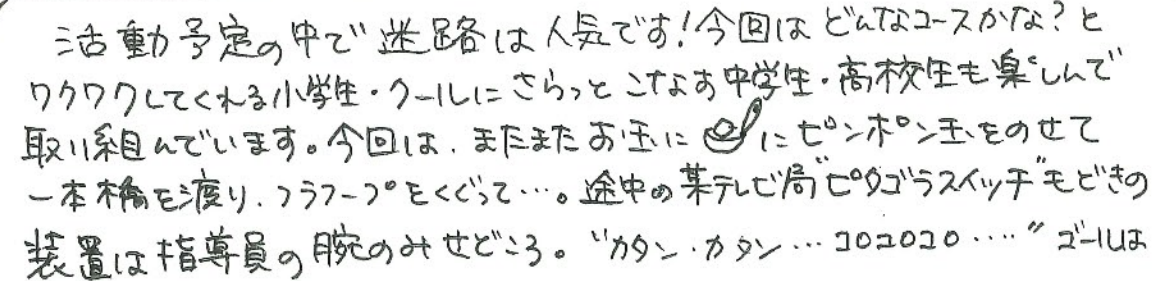 活動予定の中で迷路は人気です!今回はどんなコースかな?と
ワクワクしてくれる小学生・クールにさらっとこなす中学生・高校生も楽しんで
取り組んでいます。今回は、またまたお玉に にピンポン玉をのせて
一本橋を渡り、フラフープをくぐって…。途中の某テレビ局"ピタゴラスイッチ"もどきの
装置は指導員の腕のみせどころ。"カタン・カタン…コロコロコロ‥‥" ゴールは